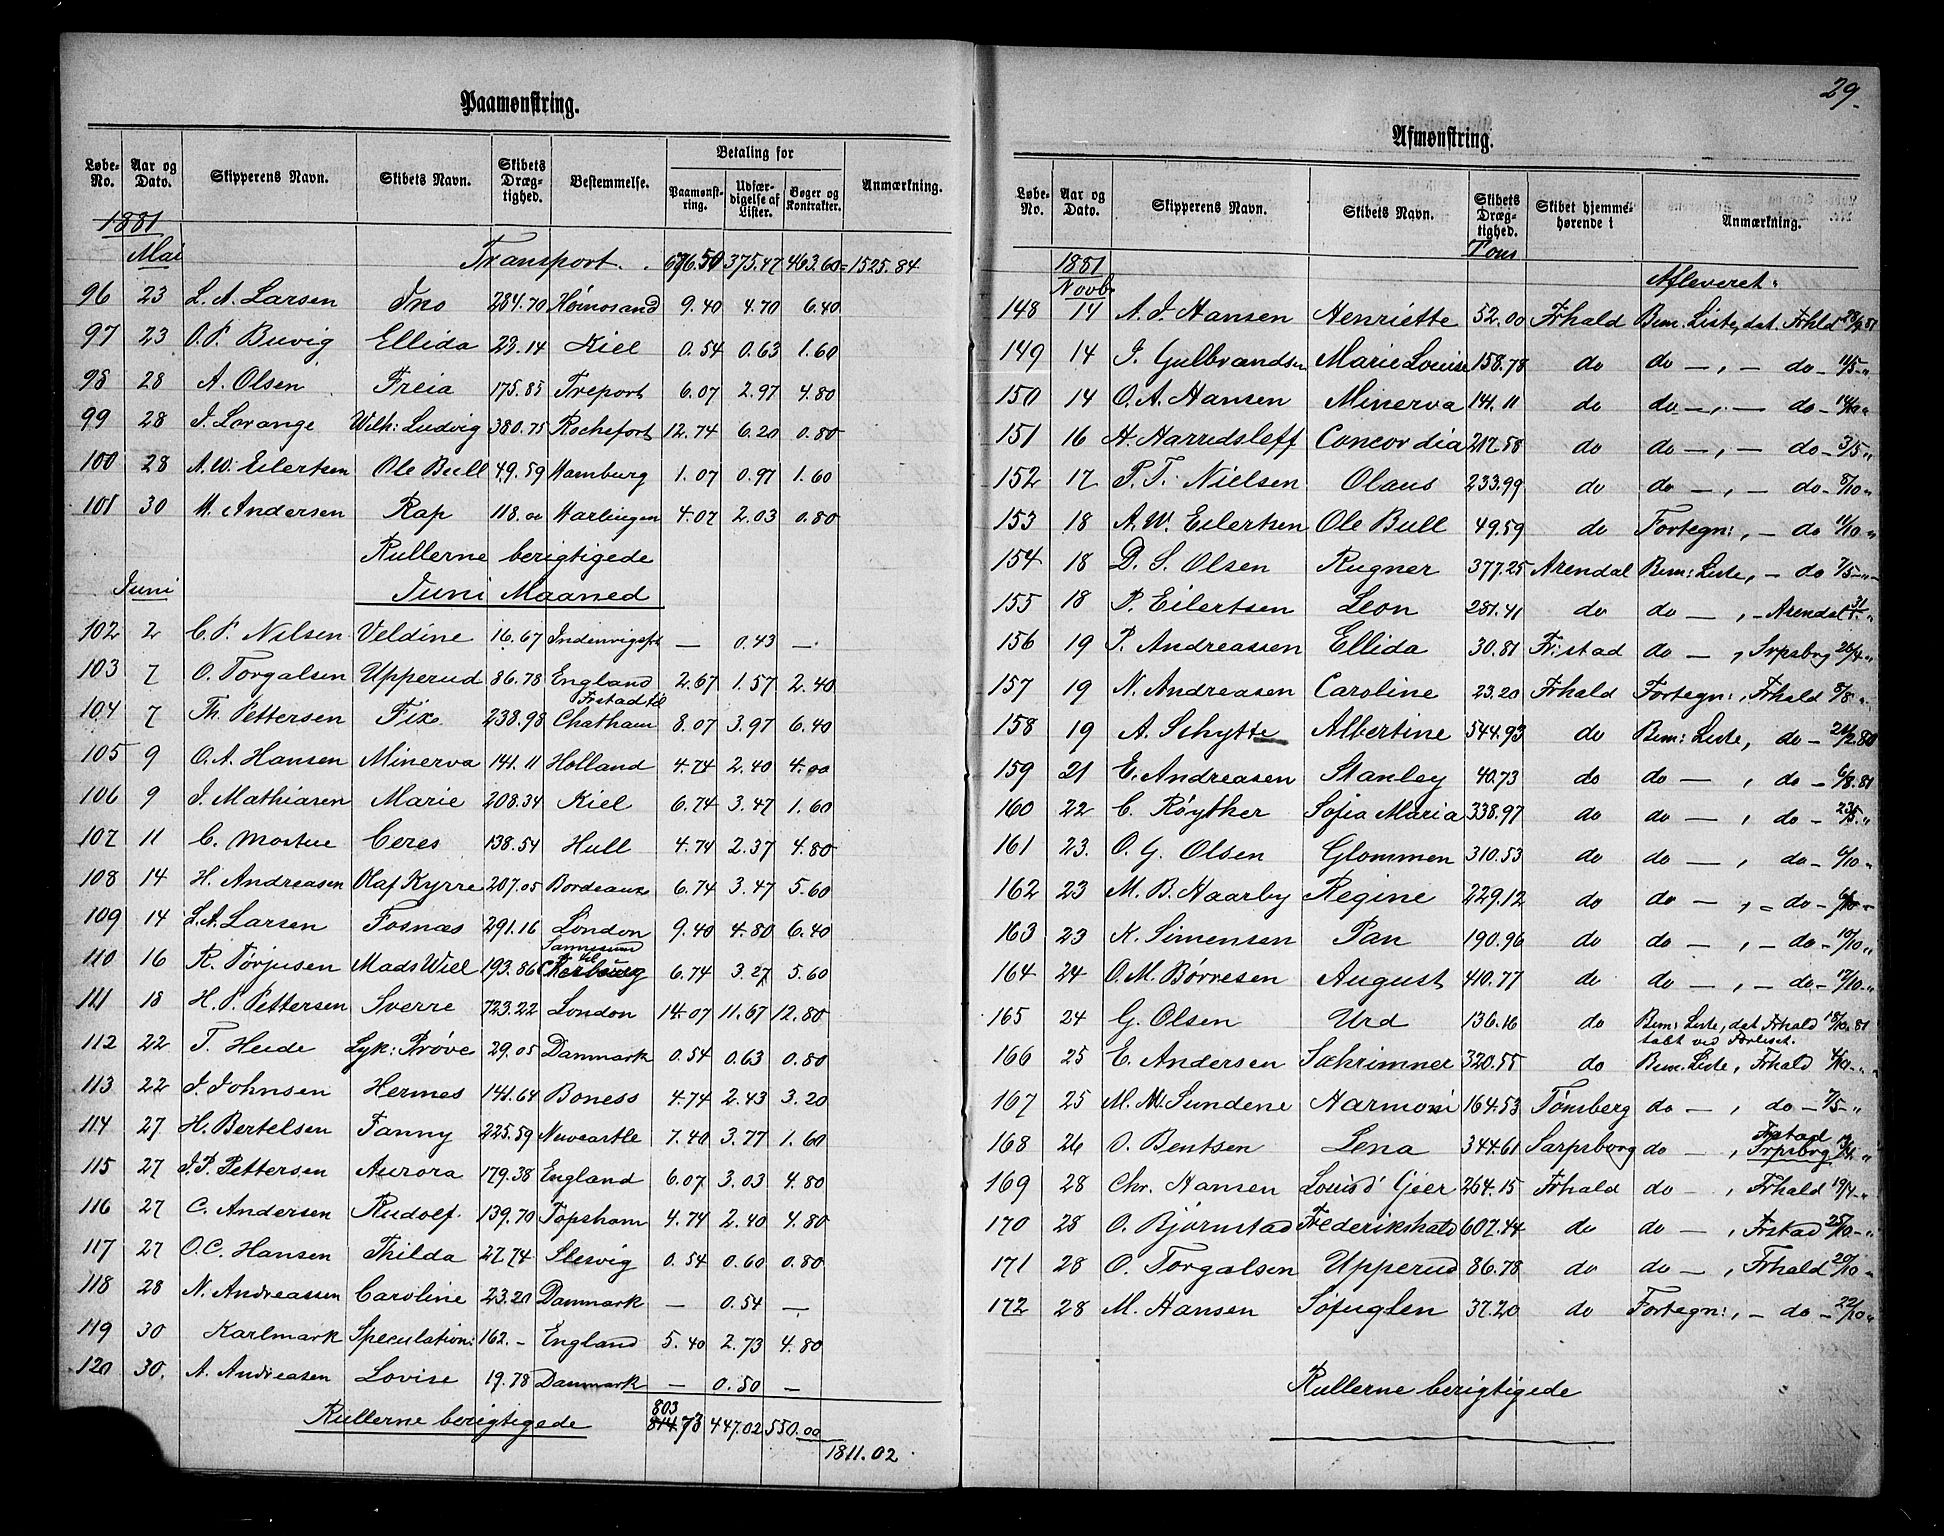 Paamønstring.
Løbe-No. Aar og Dato. Skipperens Navn. Skibets Navn. Skibets Dræg-tighed. Bestemmelse. Betaling for Paamønst-ring. Udfær-digelse af Lister. Bøger og Kontrakter. Anmærkning.
1881
Mai Transport. . 676.50 375.47 463.60 = 1525.84
96 23 L. A. Larsen Ino 284.70 Hørnosand 9.40 4.70 6.40
97 23 O. P. Buvig Ellida 23.14 Kiel 0.54 0.63 1.60
98 28 A. Olsen Freia 175.85 Treport 6.07 2.97 4.80
99 28 J. Lorange Wilh: Ludvig 380.75 Rochefort 12.74 6.20 0.80
100 28 A. W. Eilertsen Ole Bull 49.59 Hamburg 1.07 0.97 1.60
101 30 M. Andersen Rap 118.00 Harlingen 4.07 2.03 0.80
Rullerne berigtigede
Juni Juni Maaned
102 2 C. P. Nilsen Veldine 16.67 Indenrigsfrt — 0.43 —
103 7 O. Torgalsen Upperud 86.78 England 2.67 1.57 2.40
104 7 Th. Pettersen Fix 238.98 Frstad til Chatham 8.07 3.97 6.40
105 9 O. A. Hansen Minerva 141.11 Holland 4.74 2.40 4.00
106 9 J. Mathiasen Marie 208.34 Kiel 6.74 3.47 1.60
107 11 C. Mostue Ceres 138.54 Hull 4.74 2.37 4.80
108 14 H. Andreasen Olaf Kyrre 207.05 Bordeaux 6.74 3.47 5.60
109 14 L. A. Larsen Fosnæs 291.16 London 9.40 4.80 6.40
110 16 R. Torjusen Mads Wiel 193.86 Sannesund til Cherbourg 6.74 3.27 5.60
111 18 H. P. Pettersen Sverre 723.22 London 14.07 11.67 12.80
112 22 T. Heide Lyk: Prøve 29.05 Danmark 0.54 0.63 0.80
113 22 J. Johnsen Hermes 141.64 Boness 4.74 2.43 3.20
114 27 H. Bertelsen Fanny 225.59 Newcastle 7.40 3.77 1.60
115 27 J. P. Pettersen Aurora 179.38 England 6.07 3.03 4.80
116 27 C. Andersen Rudolf 139.70 Topsham 4.74 2.40 4.80
117 27 O. C. Hansen Thilda 27.74 Slesvig 0.54 0.60 0.80
118 28 N. Andreassen Caroline 23.20 Danmark — 0.54 —
119 30 Karlmark Speculation: 162.- England 5.40 2.73 4.80
120 30. A. Andreasen Lovise 19.78 Danmark — 0.50 —
Rullerne berigtigede 803 814.73 447.02 550.00
1811.02
29.
Afmønstring.
Løbe-No. Aar og Dato. Skipperens Navn. Skibets Navn. Skibets Dræg-tighed. Skibet hjemme-hørende i Anmærkning.
Tons
1881
Novb. Afleveret.
148 14 A. J. Hansen Henriette 52.00 Frhald Bem. Liste, dat. Frhld 28/9 81
149 14 J. Gulbrandsen Marie Louise 158.78 do do — , — do - 11/5 - "
150 14 O. A. Hansen Minerva 141.11 do do — , — do - 14/10 "
151 16 H. Harridsleff Concordia 217.58 do do — , — do - 3/5 "
152 17 P. T. Nielsen Olaus 233.99 do do — , — do - 8/10 "
153 18 A. W. Eilertsen Ole Bull 49.59 do Fortegn: , — do 11/10 "
154 18 D. S. Olsen Rugner 377.25 Arendal Bem: Liste, — do 7/5 - "
155 18 P. Eilertsen Leon 281.41 do do — , - Arendal
156 19 P. Andreassen Ellida 30.81 Fr:stad do — , Srpsbrg 26/4 "
157 19 N. Andreasen Caroline 23.20 Frhald Fortegn: , Frhald 8/8 "
158 19 A. Schytte Albertine 544.93 do Bem: Liste, do - 80
159 21 E. Andreasen Stanley 40.73 do do — , do - 6/8 81
160 22 C. Røytker Sofia Maria 338.97 do do — , do - 23/5 "
161 23. O. G. Olsen Glommen 310.53 do do — , do - 6/10 "
162 23 M. B. Haarby Regine 229.12 do do — , - do -
163 23 K. Simensen Pan 190.96 do do — , - do - 10/10 "
164 24 O. M. Børresen August 410.77 do do — , — do - 12/10 "
165 24 G. Olsen Urd 136.16 do Bem: Liste, dat Frhald 18/10 81
tabt ved Forliset.
166 25 E. Andersen Sæhrimner 320.55 do Bem. Liste, Frhald 4/10 - "
167 25 M. M. Sundene Harmoni 164.53 Tønsberg do — , do - 7/5 - "
168 26 O. Bentsen Lena 344.61 Sarpsborg do — , Frstad Srpsbrg "
169 28 Chr. Hansen Louis d' Geer 264.15 Frhald do — , Frhald 19/4 - "
170 28 O. Bjørnstad Frederikshald 607.44 do do — , Frstad 25/10 - "
171 28 O. Torgalsen Upperud 86.78 do do — , Frhald 20/10 "
172 28 M. Hansen Søfuglen 37.20 do Fortegn: , — do - 22/10 "
Rullerne berigtigede